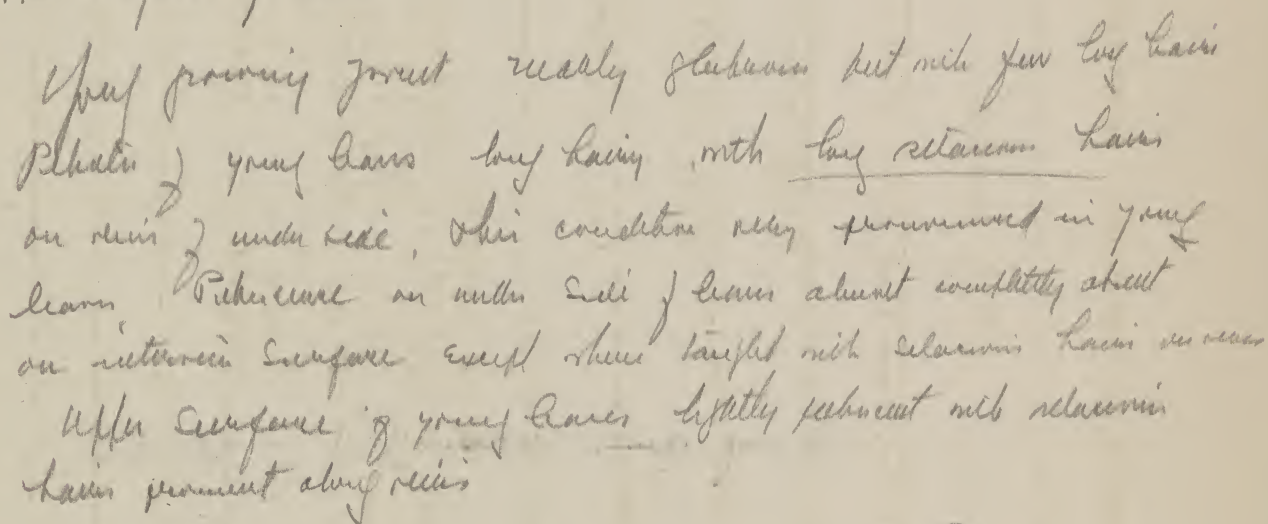 Young growing shoot nearly glabrous but with few long hairs
Petioles of young leaves long hairy, with long setaceous hairs
on veins of under side, this condition very pronounced in young
leaves. Pubescence on under side of leaves almost completely absent
on intervein surface except where tangled with setaceous hairs on veins
Upper surface of young leaves lightly pubescent with setaceous
hairs prominent along veins